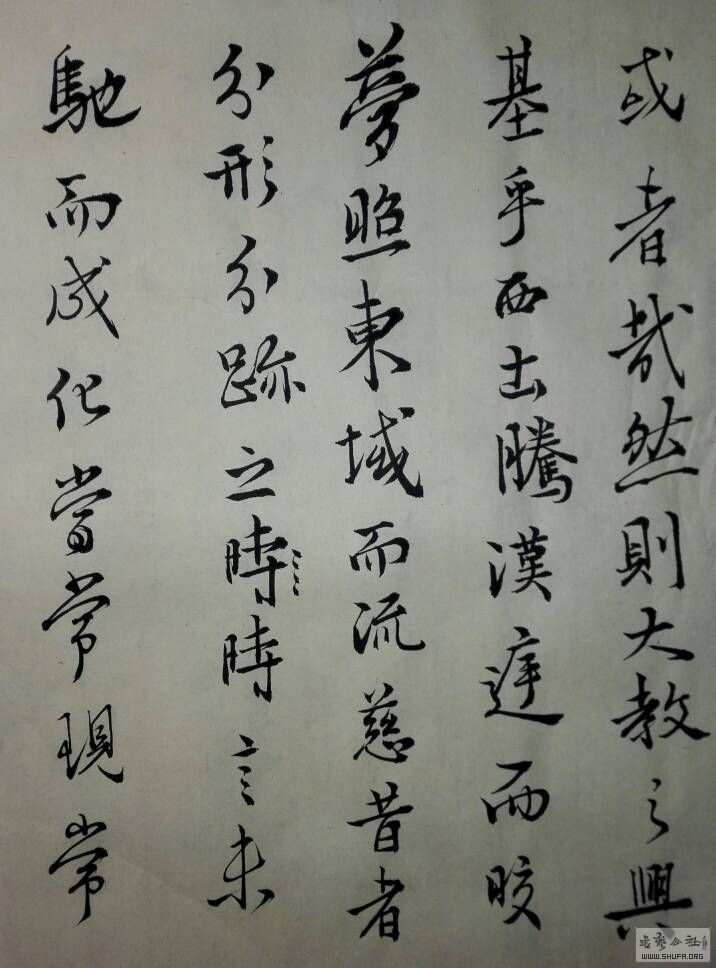 或者哉然則大教之興
基乎西土騰漢庭而晈
夢照東域而流慈昔者
分形分跡之時時言未
馳而成化當常現常
书艺公社
WWW.SHUFA.ORG